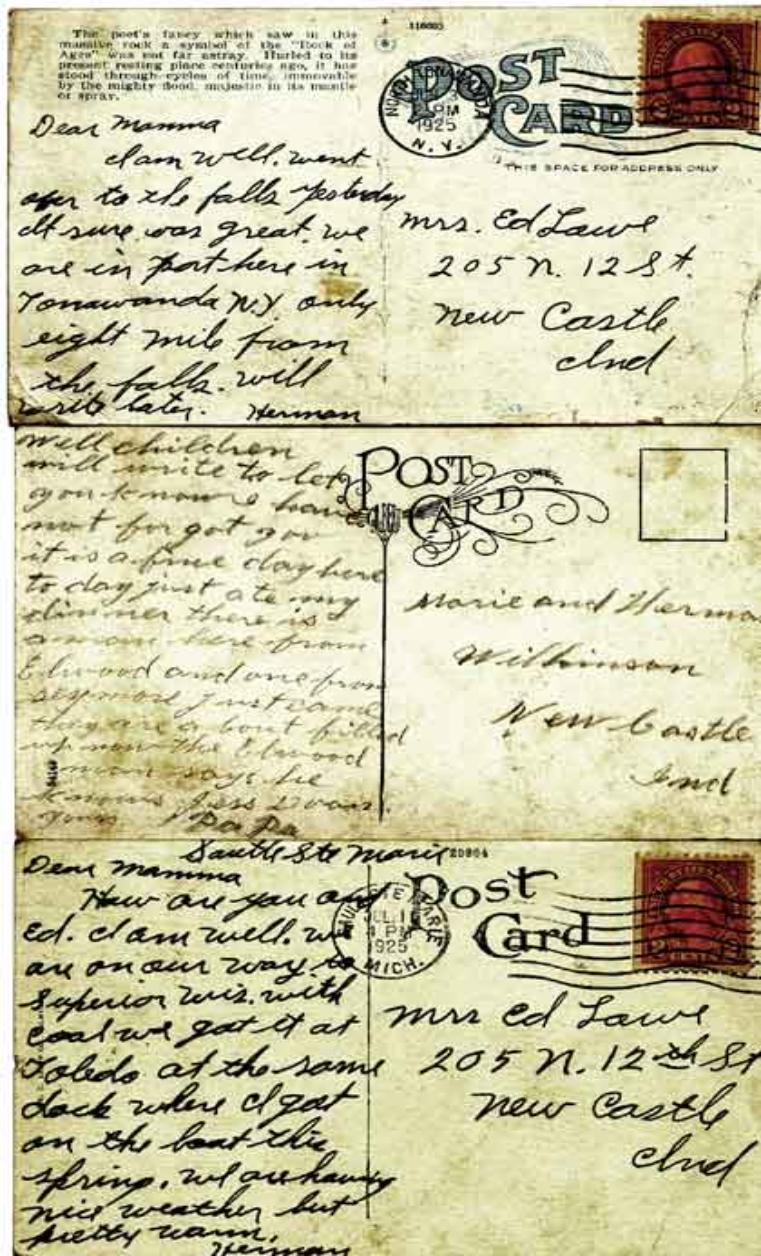 The poet's fancy which saw in this
massive rock a symbol of the "Rock of
Ages" was not far astray. Hurled to its
present resting place centuries ago, it has
stood through cycles of time, immovable
by the mighty flood, majestic in its mantle
or spray.
116603
POST
CARD
NORTH TONAWANDA
PM
1925
N. Y.
THIS SPACE FOR ADDRESS ONLY
Dear Mamma
I am well. went
over to the falls yesterday
It sure was great. we
are in port here in
Tonawanda N.Y. only
eight mile from
the falls. will
write later. Herman
Mrs. Ed Lawe
205 N. 12 St.
New Castle
Ind
Well children
will write to let
you know i have
not for got you
it is a fine day here
to day just ate my
dinner there is
a man here from
Elwood and one from
seymore just came
they are a bout filled
up now the Elwood
man says he
knows Jess
yours Pa Pa
POST
CARD
Marie and Herman
Wilkinson
New Castle
Ind
Saulte Ste Marie
20804
Dear Mamma
How are you and
Ed. I am well. we
are on our way to
Superior Wis. with
coal we got it at
Toledo at the same
dock where I got
on the boat this
spring. we are having
nice weather but
pretty warm.
Herman
Post
Card
SAULT STE MARIE
JUL 1
4 PM
1925
MICH.
Mrs Ed Lawe
205 N. 12th St
New Castle
Ind